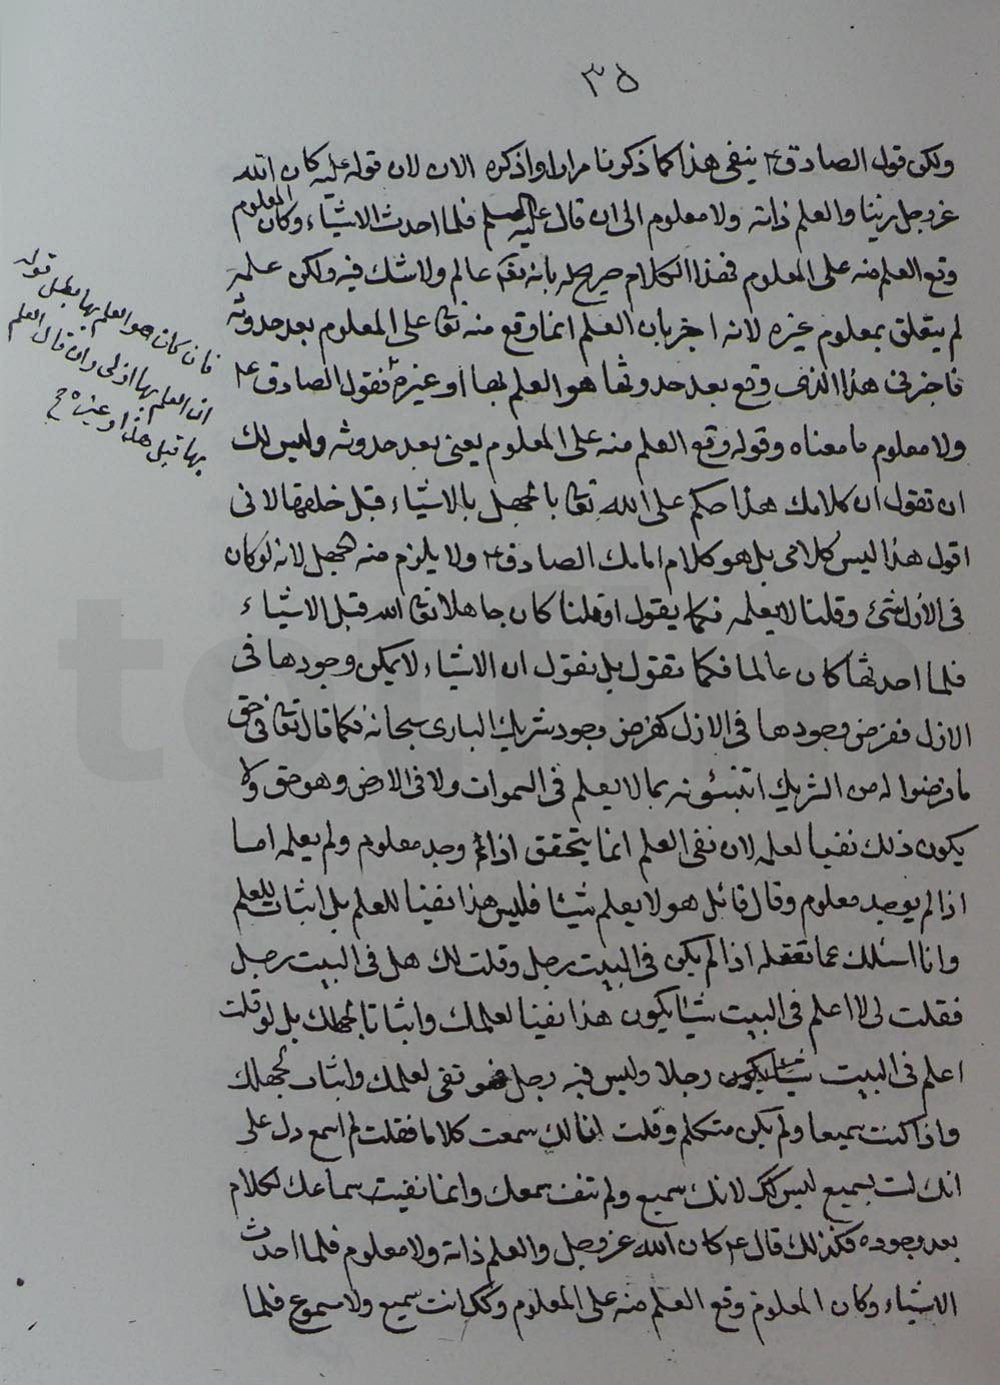 ٣٥
ولكن قول الصادق ع ينفى هذا كما ذكرنا مرارا واذكره الان لان قوله عليه كان الله
عز وجل ربنا والعلم ذاته ولا معلوم الى ان قال عليه السلم فلما احدث الاشياء وكان المعلوم
وقع العلم منه على المعلوم فهذا الكلام صريح له بانه تعا عالم ولا شك فيه ولكن علمه
لم يتعلق بمعلوم غيره لانه اخبر بان العلم انما وقع منه تعا على المعلوم بعد حدوثه
فاخبرنى هذا الذى وقع بعد حدوثها هو العلم بها او غيره فقول الصادق ع
ولا معلوم ما معناه وقوله وقع العلم منه على المعلوم يعنى بعد حدوثه وليس لك
ان تقول ان كلامك هذا حكم على الله تعا بالجهل بالاشياء قبل خلقها لانى
اقول هذا ليس كلامى بل هو كلام امامك الصادق ع ولا يلزم منه جهل لانه لو كان
فى الازل شئ وقلنا لا يعلمه فكما يقول او قلنا كان جاهلا تعا الله قبل الاشياء
فلما احدثها كان عالما فكما تقول بل نقول ان الاشياء لا يمكن وجودها فى
الازل ففرض وجودها فى الازل كفرض وجود شريك البارى سبحانه فكما قال تعا فى حق
ما فرضوا له من الشريك اتنبئونه بما لا يعلم فى السموات ولا فى الارض وهو حق ولا
يكون ذلك نفيا لعلمه لان نفى العلم انما يتحقق اذا وجد معلوم ولم يعلمه اما
اذا لم يوجد معلوم وقال قائل هو لا يعلم شيئا فليس هذا نفيا للعلم بل اثبات للعلم
وانا اسئلك عما تعقله اذا لم يكن فى البيت رجل وقلت لك هل فى البيت رجل
فقلت لى لا اعلم فى البيت شيئا يكون هذا نفيا لعلمك واثباتا لجهلك بل لو قلت
اعلم فى البيت رجلا وليس فيه رجل فهو نفى لعلمك واثبات لجهلك
واذا كنت سميعا ولم يكن متكلم وقلت انا لك سمعت كلاما فقلت لم اسمع دل على
انك لست بسميع ليس كك لانك سميع ولم تنف سمعك وانما نفيت سماعك لكلام
بعد وجوده فكذلك قال ع كان الله عز وجل والعلم ذاته ولا معلوم فلما احدث
الاشياء وكان المعلوم وقع العلم منه على المعلوم وكك انت سميع ولا مسموع فلما
فان كان هو العلم بها بطل قوله
ان العلم بها ازلى وان قال العلم
بها قبل هذا وغيره